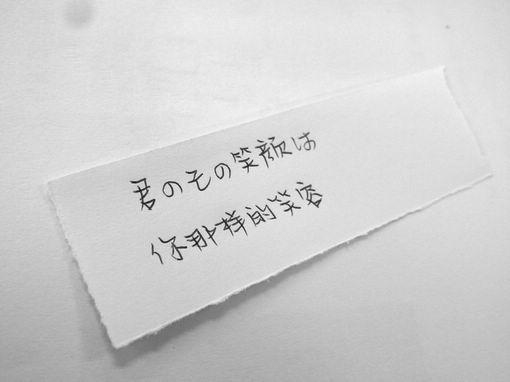 君のその笑顔は
你那样的笑容